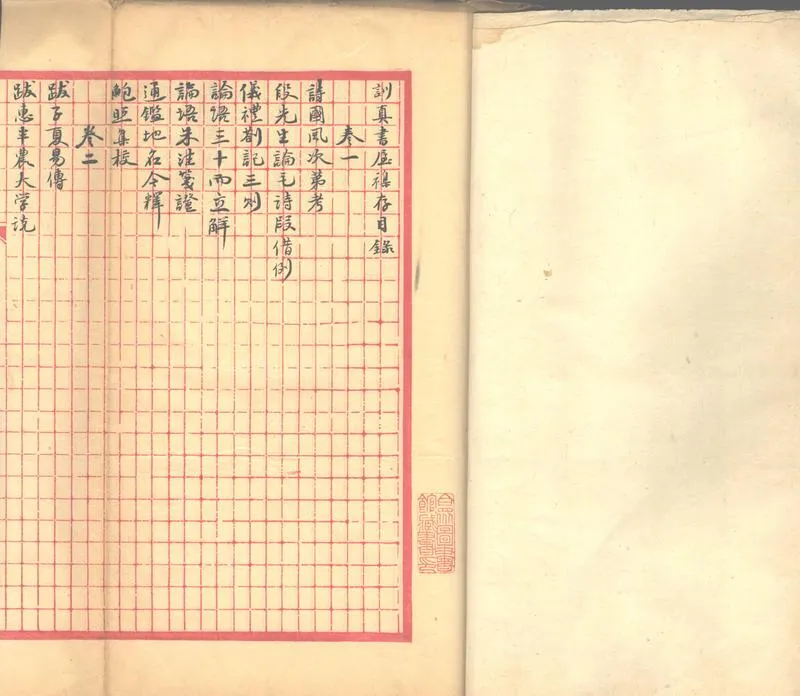 訓真書屋襍存目錄
卷一
詩國風次第考
段先生論毛詩叚借例
儀禮劄記三則
論語三十而立解
論語朱注箋證
通鑑地名今釋
鮑照集校
卷二
跋子夏易傳
跋惠半農大学说